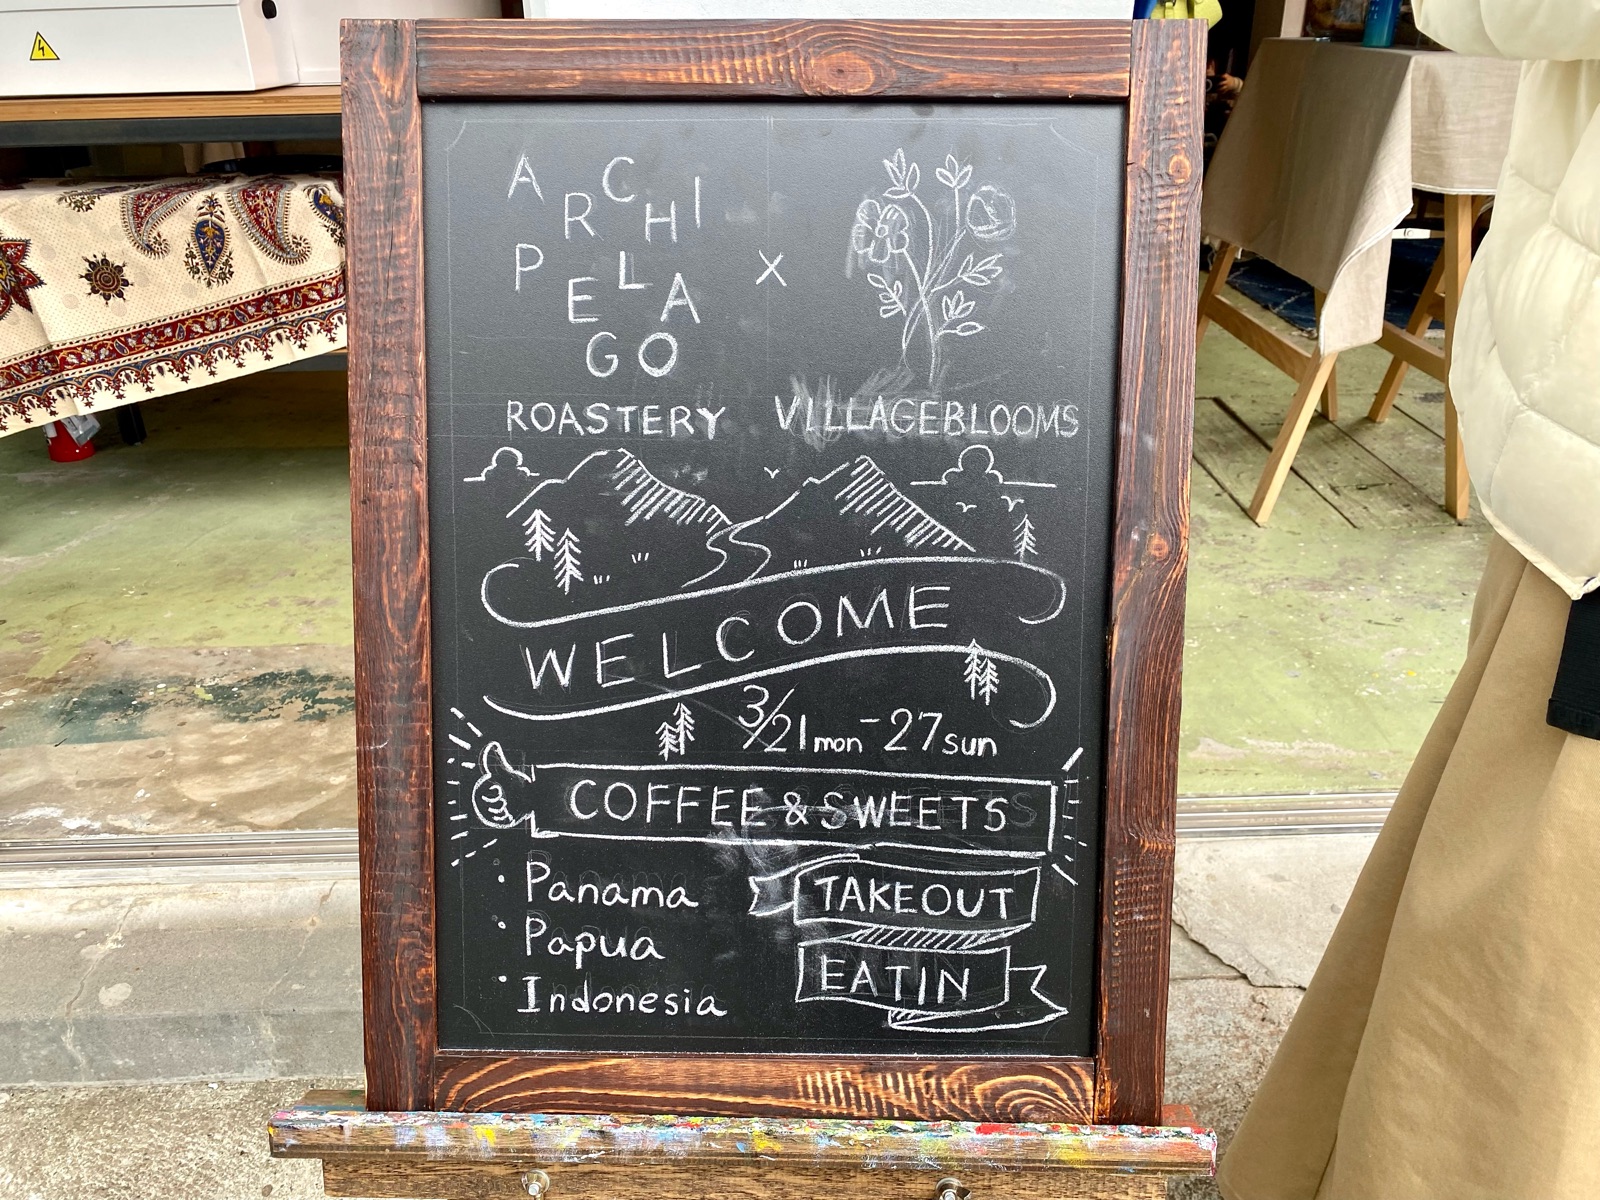 ARCHI
PELA
GO
×
ROASTERY
VILLAGEBLOOMS
WELCOME
3/21mon-27sun
COFFEE & SWEETS
・Panama
・Papua
・Indonesia
TAKEOUT
EATIN